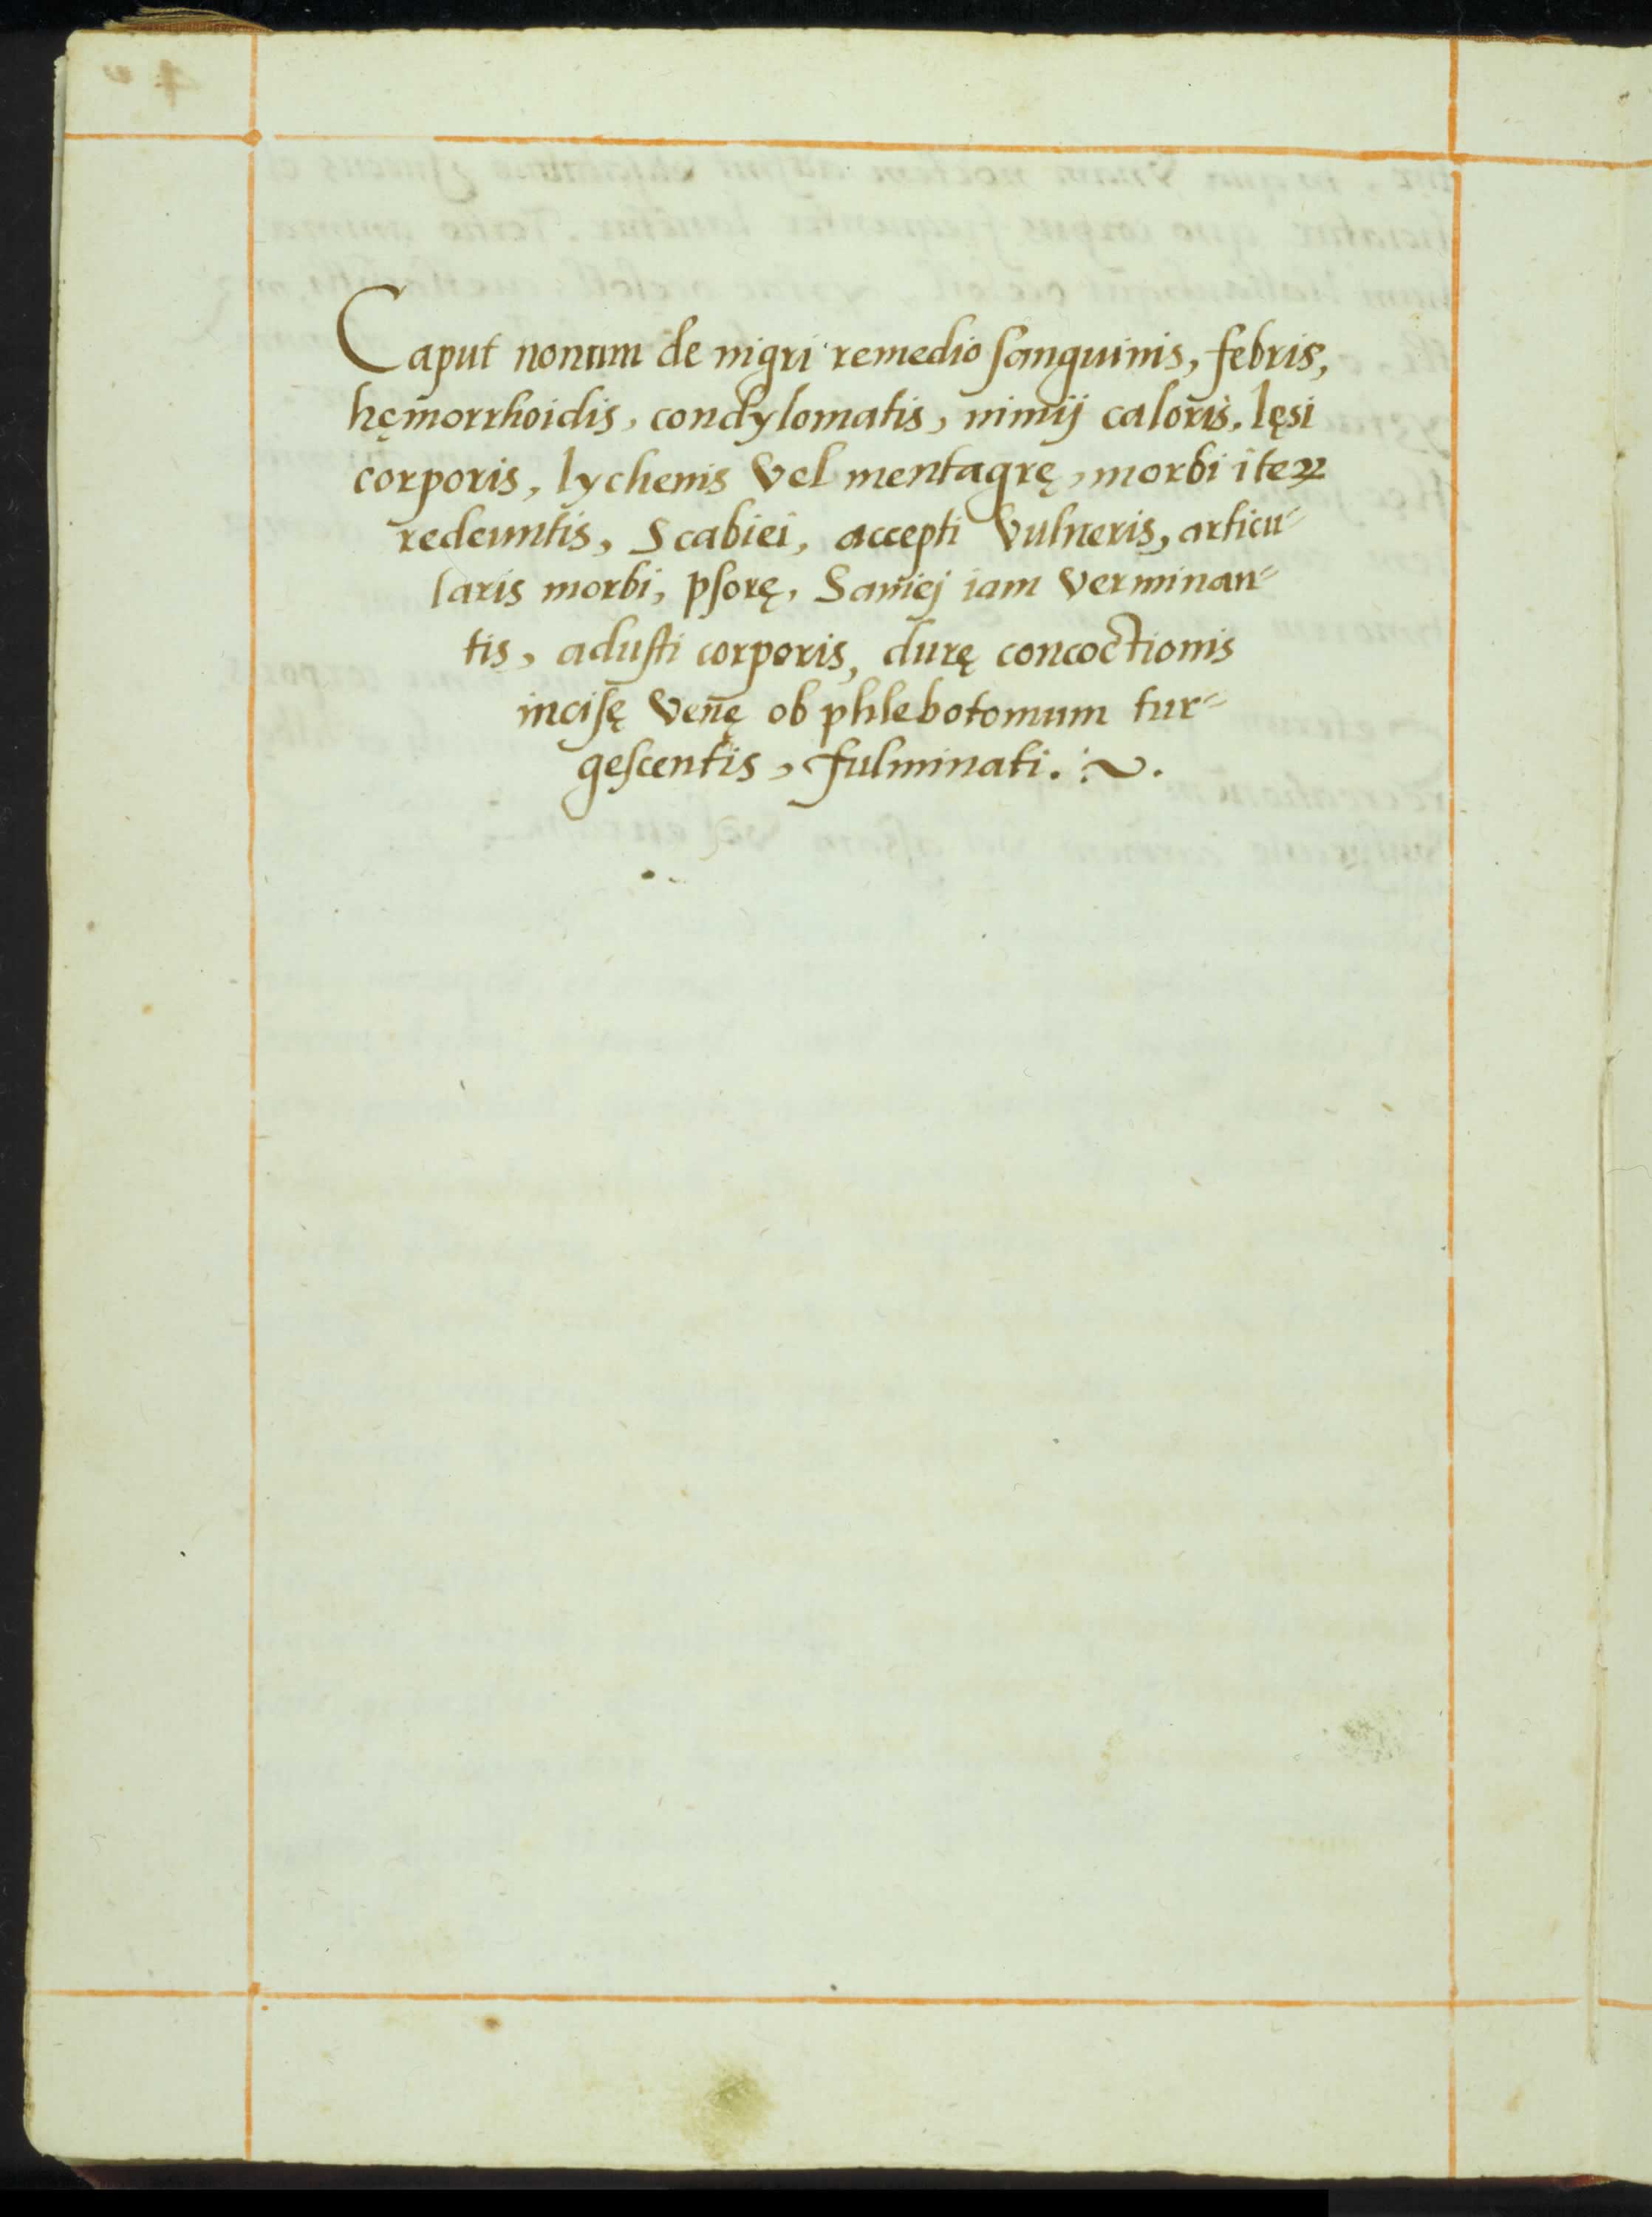 Caput nonum de nigri remedio sanguinis, febris,
hęmorrhoidis, condylomatis, nimij caloris, lęsi
corporis, lychenis vel mentagrę, morbi iteꝝ
redeuntis, Scabiei, accepti vulneris, articu⸗
laris morbi, psorę, Saniej iam verminan⸗
tis, adusti corporis, durę concoctionis
incisę venę ob phlebotomum tur⸗
gescentis, fulminati.